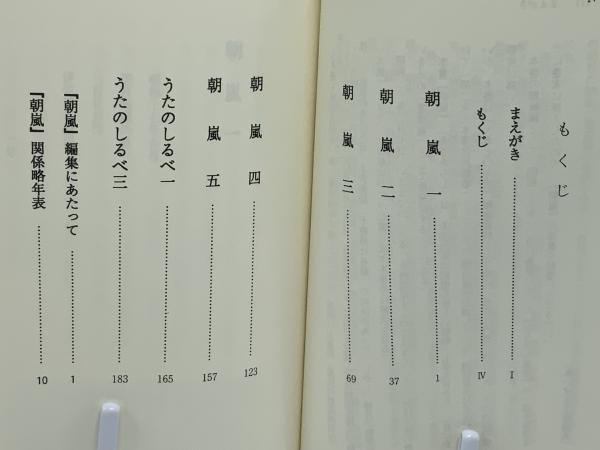 もくじ
まえがき……………………Ⅰ
もくじ……………………Ⅳ
朝嵐 一……………………1
朝嵐 二……………………37
朝嵐 三……………………69
朝嵐 四……………………123
朝嵐 五……………………157
うたのしるべ一……………………165
うたのしるべ三……………………183
『朝嵐』編集にあたって……………………1
『朝嵐』関係略年表……………………10